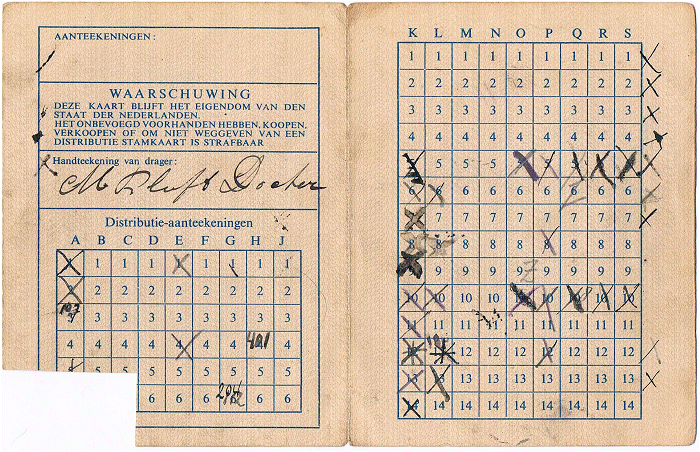 AANTEEKENINGEN:
WAARSCHUWING
DEZE KAART BLIJFT HET EIGENDOM VAN DEN
STAAT DER NEDERLANDEN.
HET ONBEVOEGD VOORHANDEN HEBBEN, KOOPEN,
VERKOOPEN OF OM NIET WEGGEVEN VAN EEN
DISTRIBUTIE STAMKAART IS STRAFBAAR
Handteekening van drager:
Distributie-aanteekeningen
A B C D E F G H J
1 1 1 1 1 1 1 1
2 2 2 2 2 2 2 2 2
3 3 3 3 3 3 3 3
4 4 4 4 4 4 4 401 4
5 5 5 5 5 5 5 5
6 6 6 6 6 6
K L M N O P Q R S
1 1 1 1 1 1 1 1 1
2 2 2 2 2 2 2 2 2
3 3 3 3 3 3 3 3 3
4 4 4 4 4 4 4 4 4
5 5 5 5 5 5 5 5
6 6 6 6 6 6 6 6 6
7 7 7 7 7 7 7 7
8 8 8 8 8 8 8 8 8
9 9 9 9 9 9 9 9
10 10 10 10 10 10 10 10 10
11 11 11 11 11 11 11 11 11
12 12 12 12 12 12 12 12
13 13 13 13 13 13 13 13 13
14 14 14 14 14 14 14 14 14